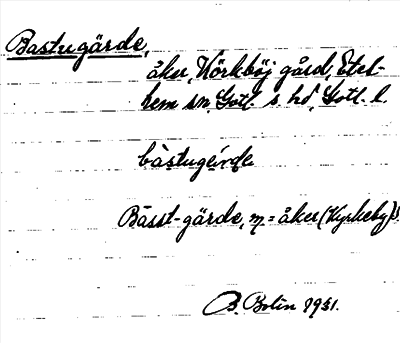 Bastugärde,
åker, Hörkböj gård, Etel-
hem sn, Gotl. s. hd, Gotl. l.
bàstugèrde
Băsst-gärde, m = åker (Kyrkeby)
B. Bolin 1931.